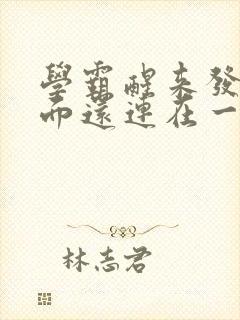 學霸醒來發
而還連在一
林志君